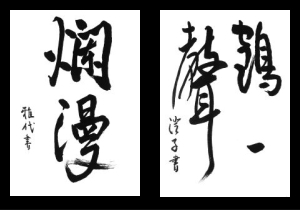 爛漫
雅代書
鶴一
聲
澄子書